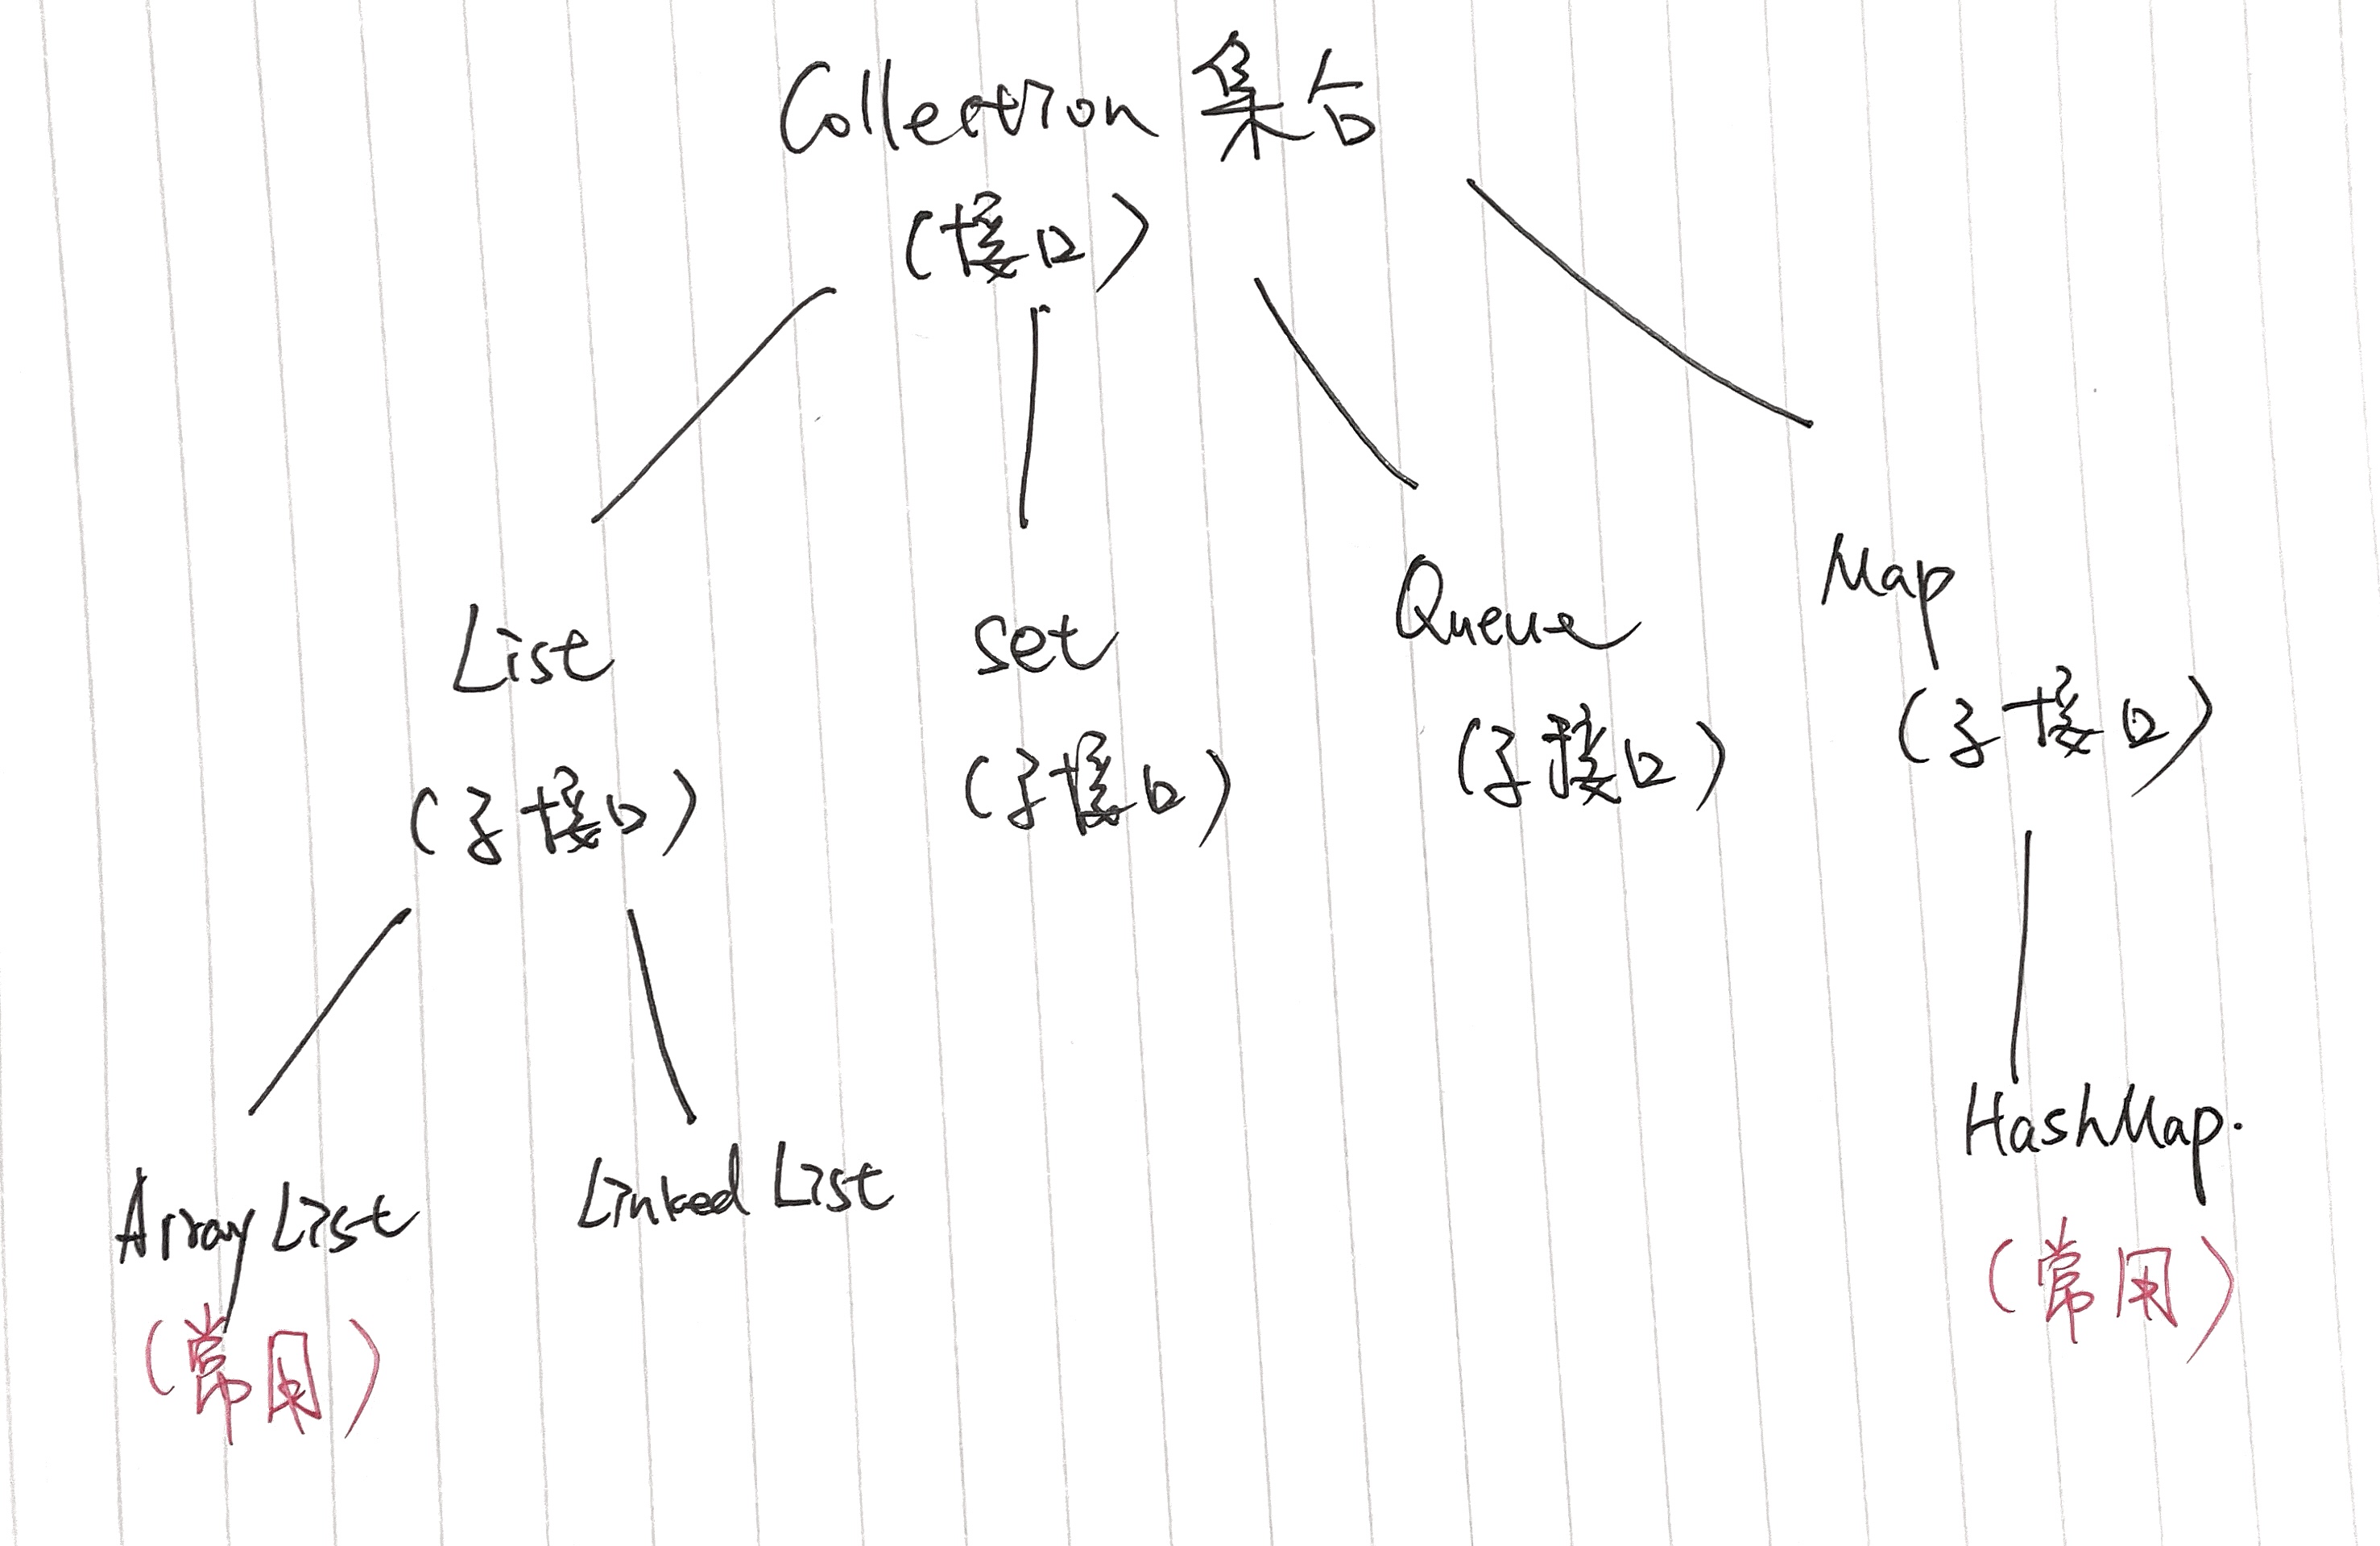 Collection 集合
(接口)
List
(子接口)
set
(子接口)
Queue
(子接口)
Map
(子接口)
ArrayList
(常用)
Linked List
HashMap.
(常用)